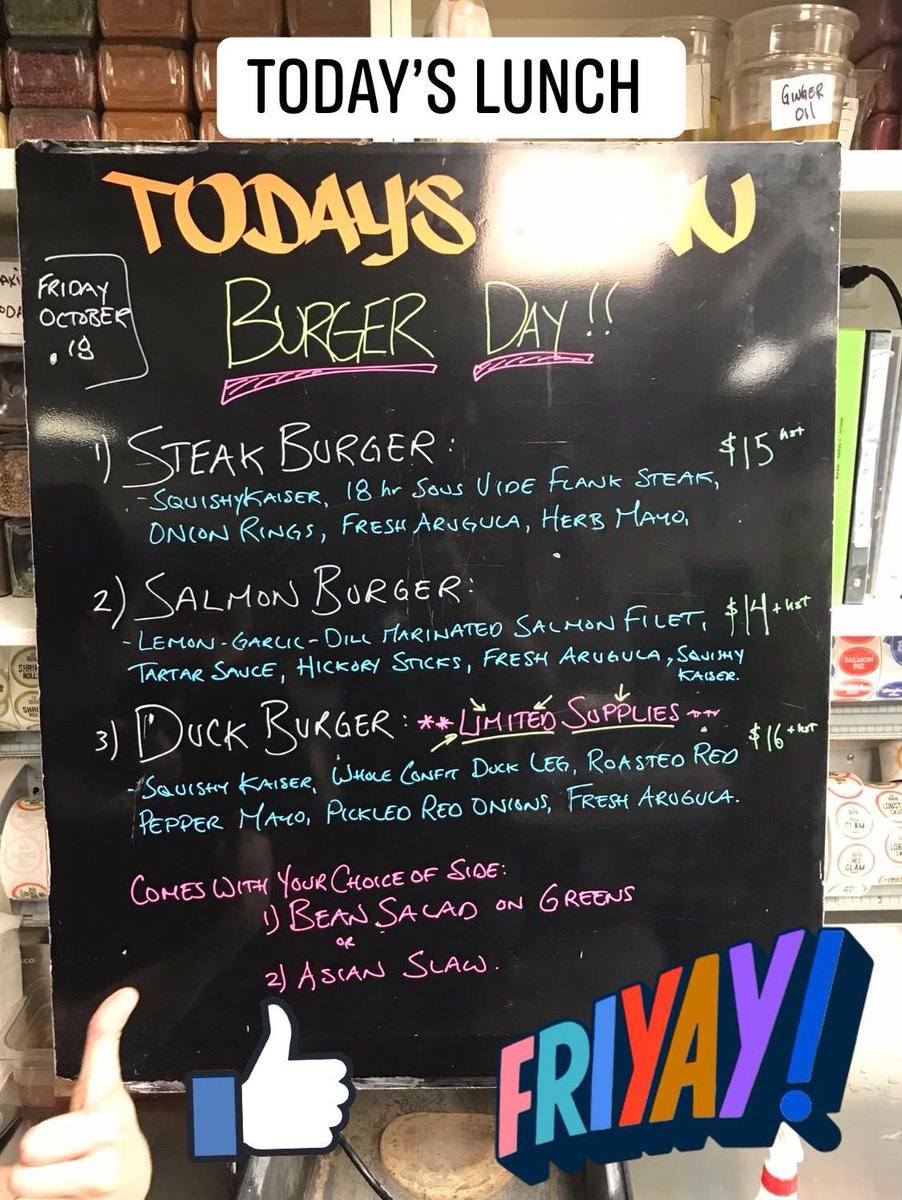 TODAY'S LUNCH
GINGER
OIL
TODAY'S
FRIDAY
OCTOBER
. 18
BURGER DAY!!
1) STEAK BURGER: $15 hst
- SQUISHY KAISER, 18 hr SOUS VIDE FLANK STEAK,
ONION RINGS, FRESH ARUGULA, HERB MAYO.
2) SALMON BURGER: $14 + hst
- LEMON-GARLIC-DILL MARINATED SALMON FILET,
TARTAR SAUCE, HICKORY STICKS, FRESH ARUGULA, SQUISHY
KAISER.
3) DUCK BURGER: **LIMITED SUPPLIES** $16 + hst
- SQUISHY KAISER, WHOLE CONFIT DUCK LEG, ROASTED RED
PEPPER MAYO, PICKLED RED ONIONS, FRESH ARUGULA.
COMES WITH YOUR CHOICE OF SIDE:
1) BEAN SALAD ON GREENS
OR
2) ASIAN SLAW.
SALMON
PIE
RED
CLAM
FRIYAY!